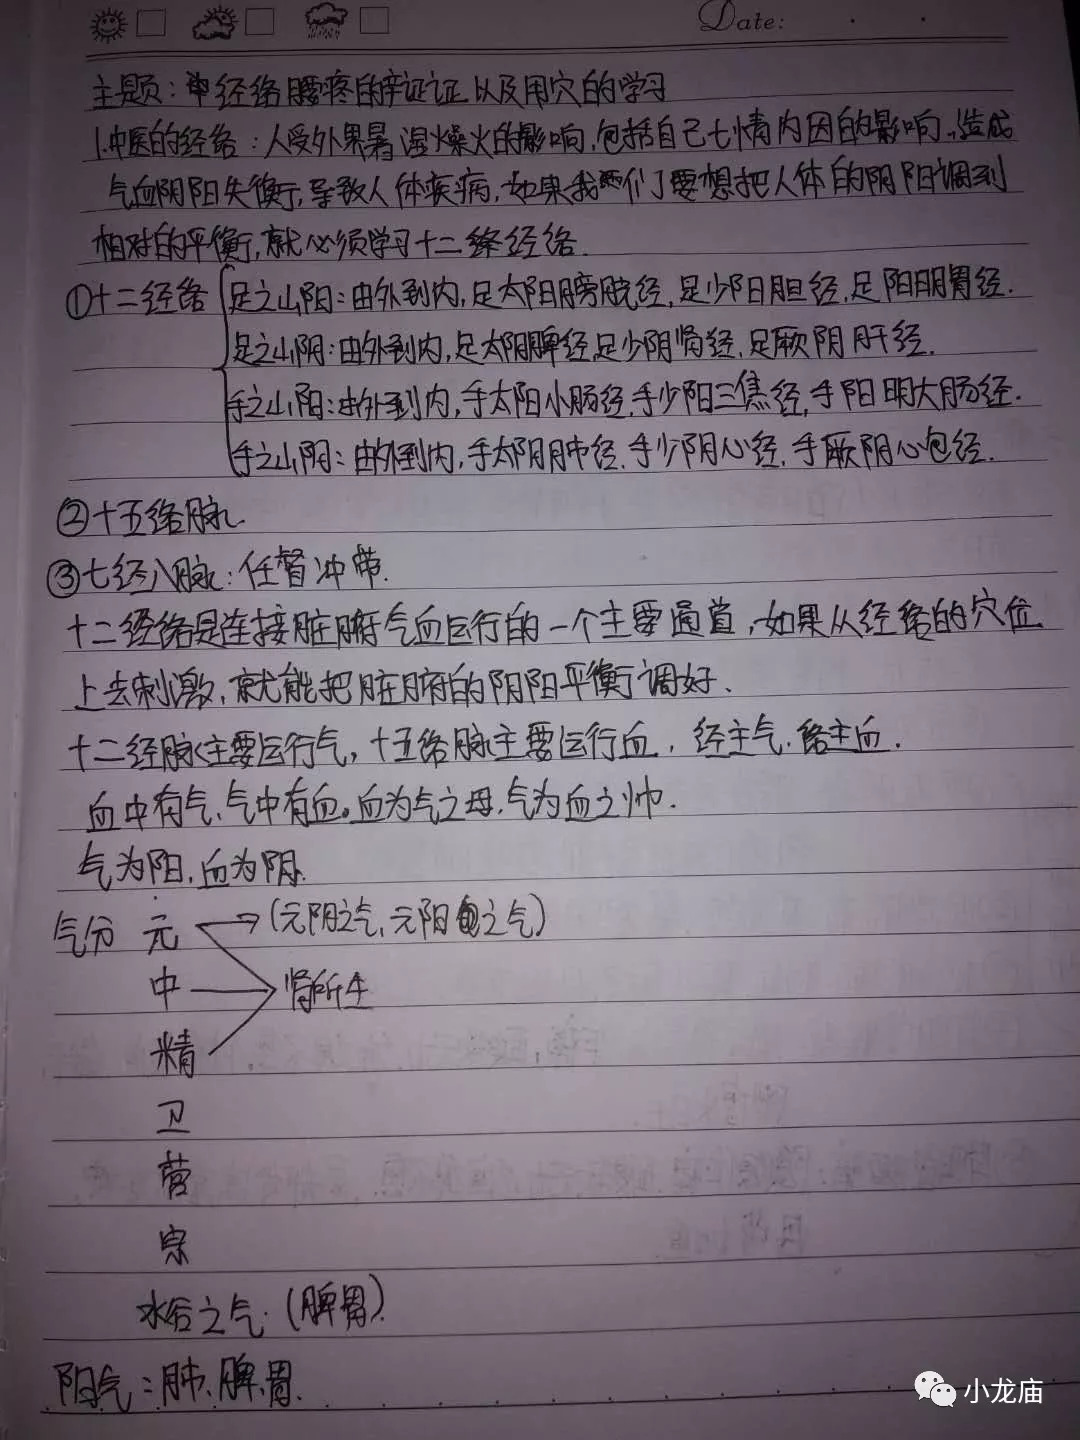 Date:
主题：中经络腰疼的辛证证以及用穴的学习
1.中医的经络：人受外界暑湿燥火的影响，包括自己七情内因的影响，造成
气血阴阳失衡，导致人体疾病，如果我们要想把人体的阴阳调到
相对的平衡，就必须学习十二经络.
①十二经络
足之山阳：由外到内，足太阳膀胱经，足少阳胆经，足阳明胃经.
足之山阴：由外到内，足太阴脾经，足少阴肾经，足厥阴肝经.
手之山阳：由外到内，手太阳小肠经，手少阳三焦经，手阳明大肠经.
手之山阴：由外到内，手太阴肺经，手少阴心经，手厥阴心包经.
②十五络脉
③七经八脉：任督冲带.
十二经络是连接脏腑气血运行的一个主要通道，如果从经络的穴位
上去刺激，就能把脏腑的阴阳平衡调好.
十二经脉主要运行气，十五络脉主要运行血，经主气，络主血.
血中有气、气中有血。血为气之母，气为血之帅.
气为阳，血为阴.
气分 元 (元阴之气，元阳之气)
中 肾所生
精
卫
营
宗
水谷之气.(脾胃).
阳气：肺、脾、胃.
小龙庙